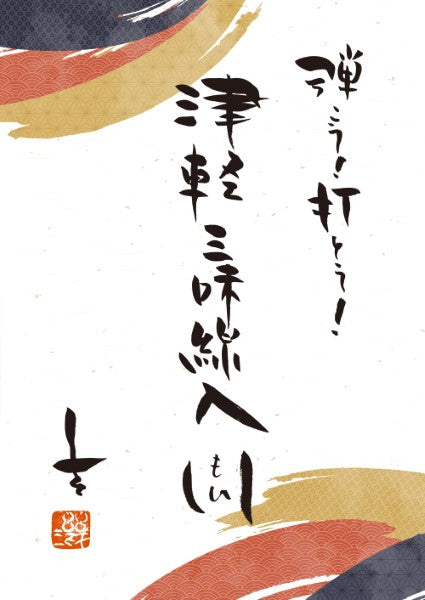 弾こう!打とう!
津軽三味線入門
もん